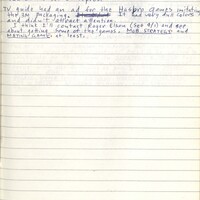 TV Guide had an ad for the Hasbro games imitating
the 3M packaging. It had very dull colors
and didn't attract attention.
I think I'll contact Roger Elson (Sgt 4/1) and see
about getting some of the games. MOB STRATEGY and
MATING GAME at least.